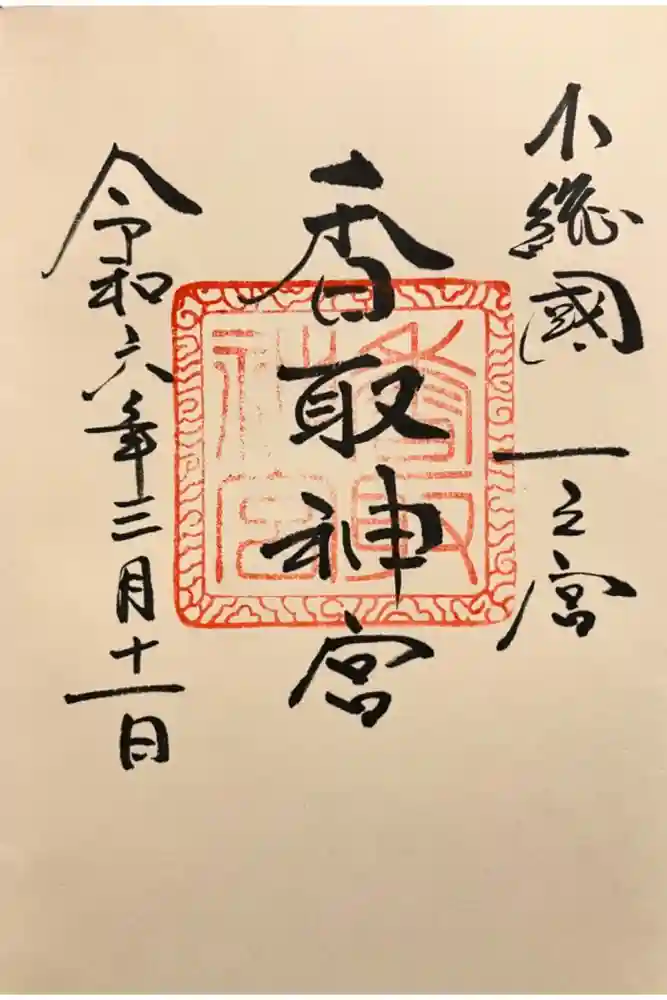 下総國一之宮
香取神宮
令和六年三月十一日
香取
神宮